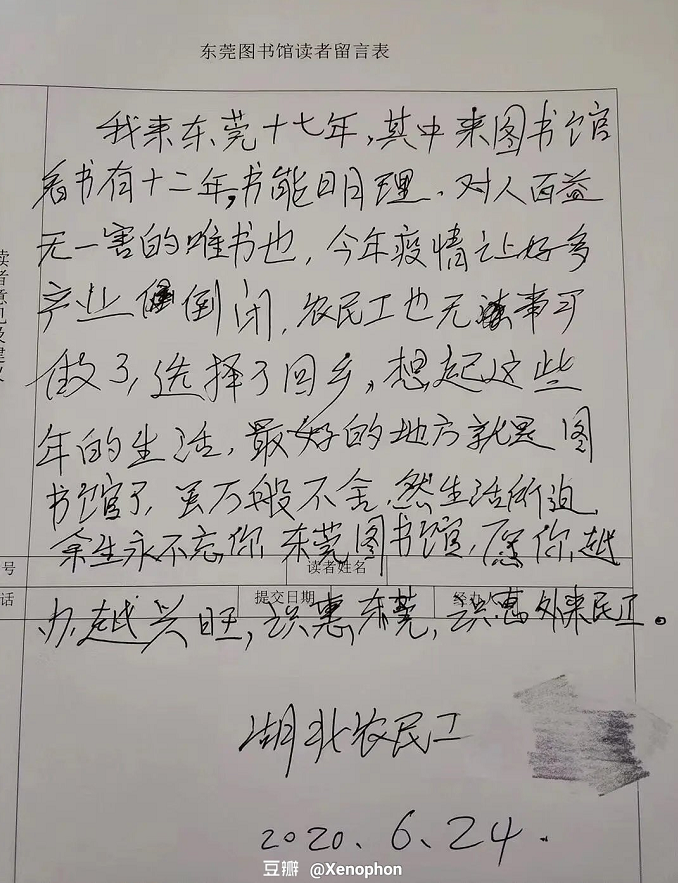 东莞图书馆读者留言表
我来东莞十七年,其中来图书馆
看书有十二年,书能明理,对人百益
无一害的唯书也,今年疫情让好多
产业倒闭,农民工也无事可
做了,选择了回乡,想起这些
年的生活,最好的地方就是图
书馆了,虽万般不舍,然生活所迫,
余生永不忘你,东莞图书馆,愿你越
办越兴旺,识惠东莞,识惠外来民工。
读者意见及建议
号
读者姓名
话
提交日期
经办
湖北农民工
2020、6、24.
豆瓣 @Xenophon